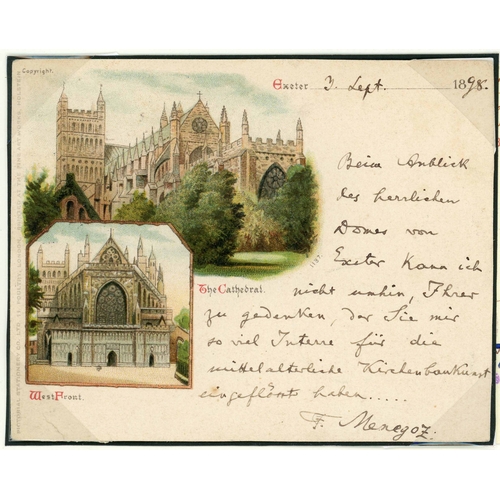 Copyright.
Exeter 3. Sept. 1898.
Beim Anblick
des herrlichen
Domes von
Exeter kann ich
The Cathedral.
nicht umhin, Ihrer
zu gedenken, der Sie mir
so viel Interre für die
mittelalterliche Kirchenbaukunst
West Front.
eingeflösst haben......
F. Menegoz.